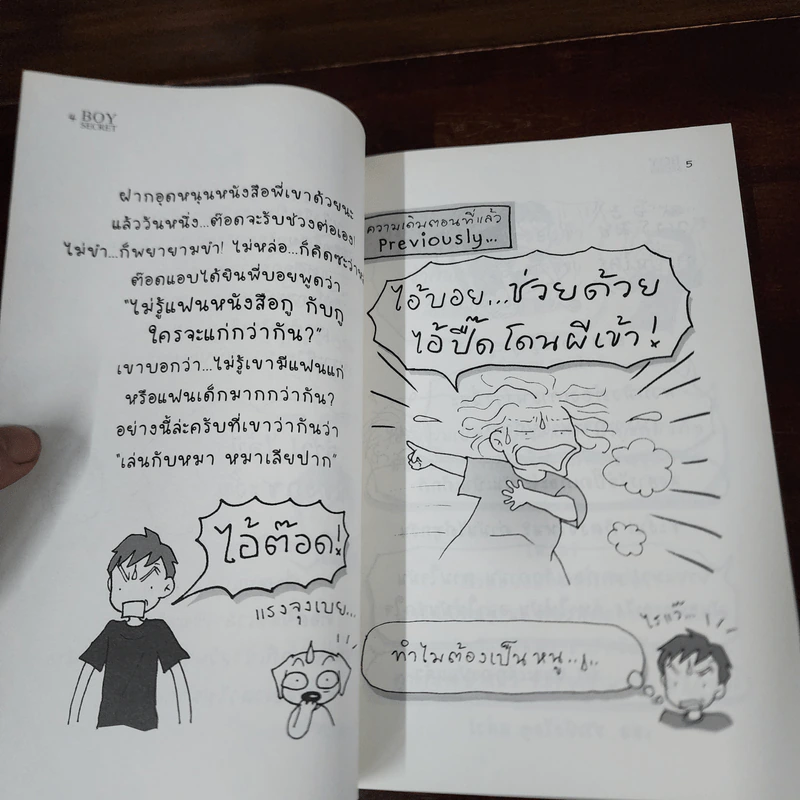 4 BOY
SECRET
ฝากอุดหนุนหนังสือพี่เขาด้วยนะ
แล้ววันหนึ่ง...ต๊อดจะรับช่วงต่อเอง!
ไม่ขำ...ก็พยายามขำ! ไม่หล่อ...ก็คิดซะว่า
ต๊อดแอบได้ยินพี่บอยพูดว่า
"ไม่รู้แฟนหนังสือกู กับกู
ใครจะแก่กว่ากัน?"
เขาบอกว่า...ไม่รู้เขามีแฟนแก่
หรือแฟนเด็กมากกว่ากัน?
อย่างนี้ล่ะครับที่เขาว่ากันว่า
"เล่นกับหมา หมาเลียปาก"
ไอ้ต๊อด!
แรงจุงเบย...
5
ความเดิมตอนที่แล้ว
Previously...
ไอ้บอย...ช่วยด้วย
ไอ้ปื๊ดโดนผีเข้า!
ทำไมต้องเป็นหนู...